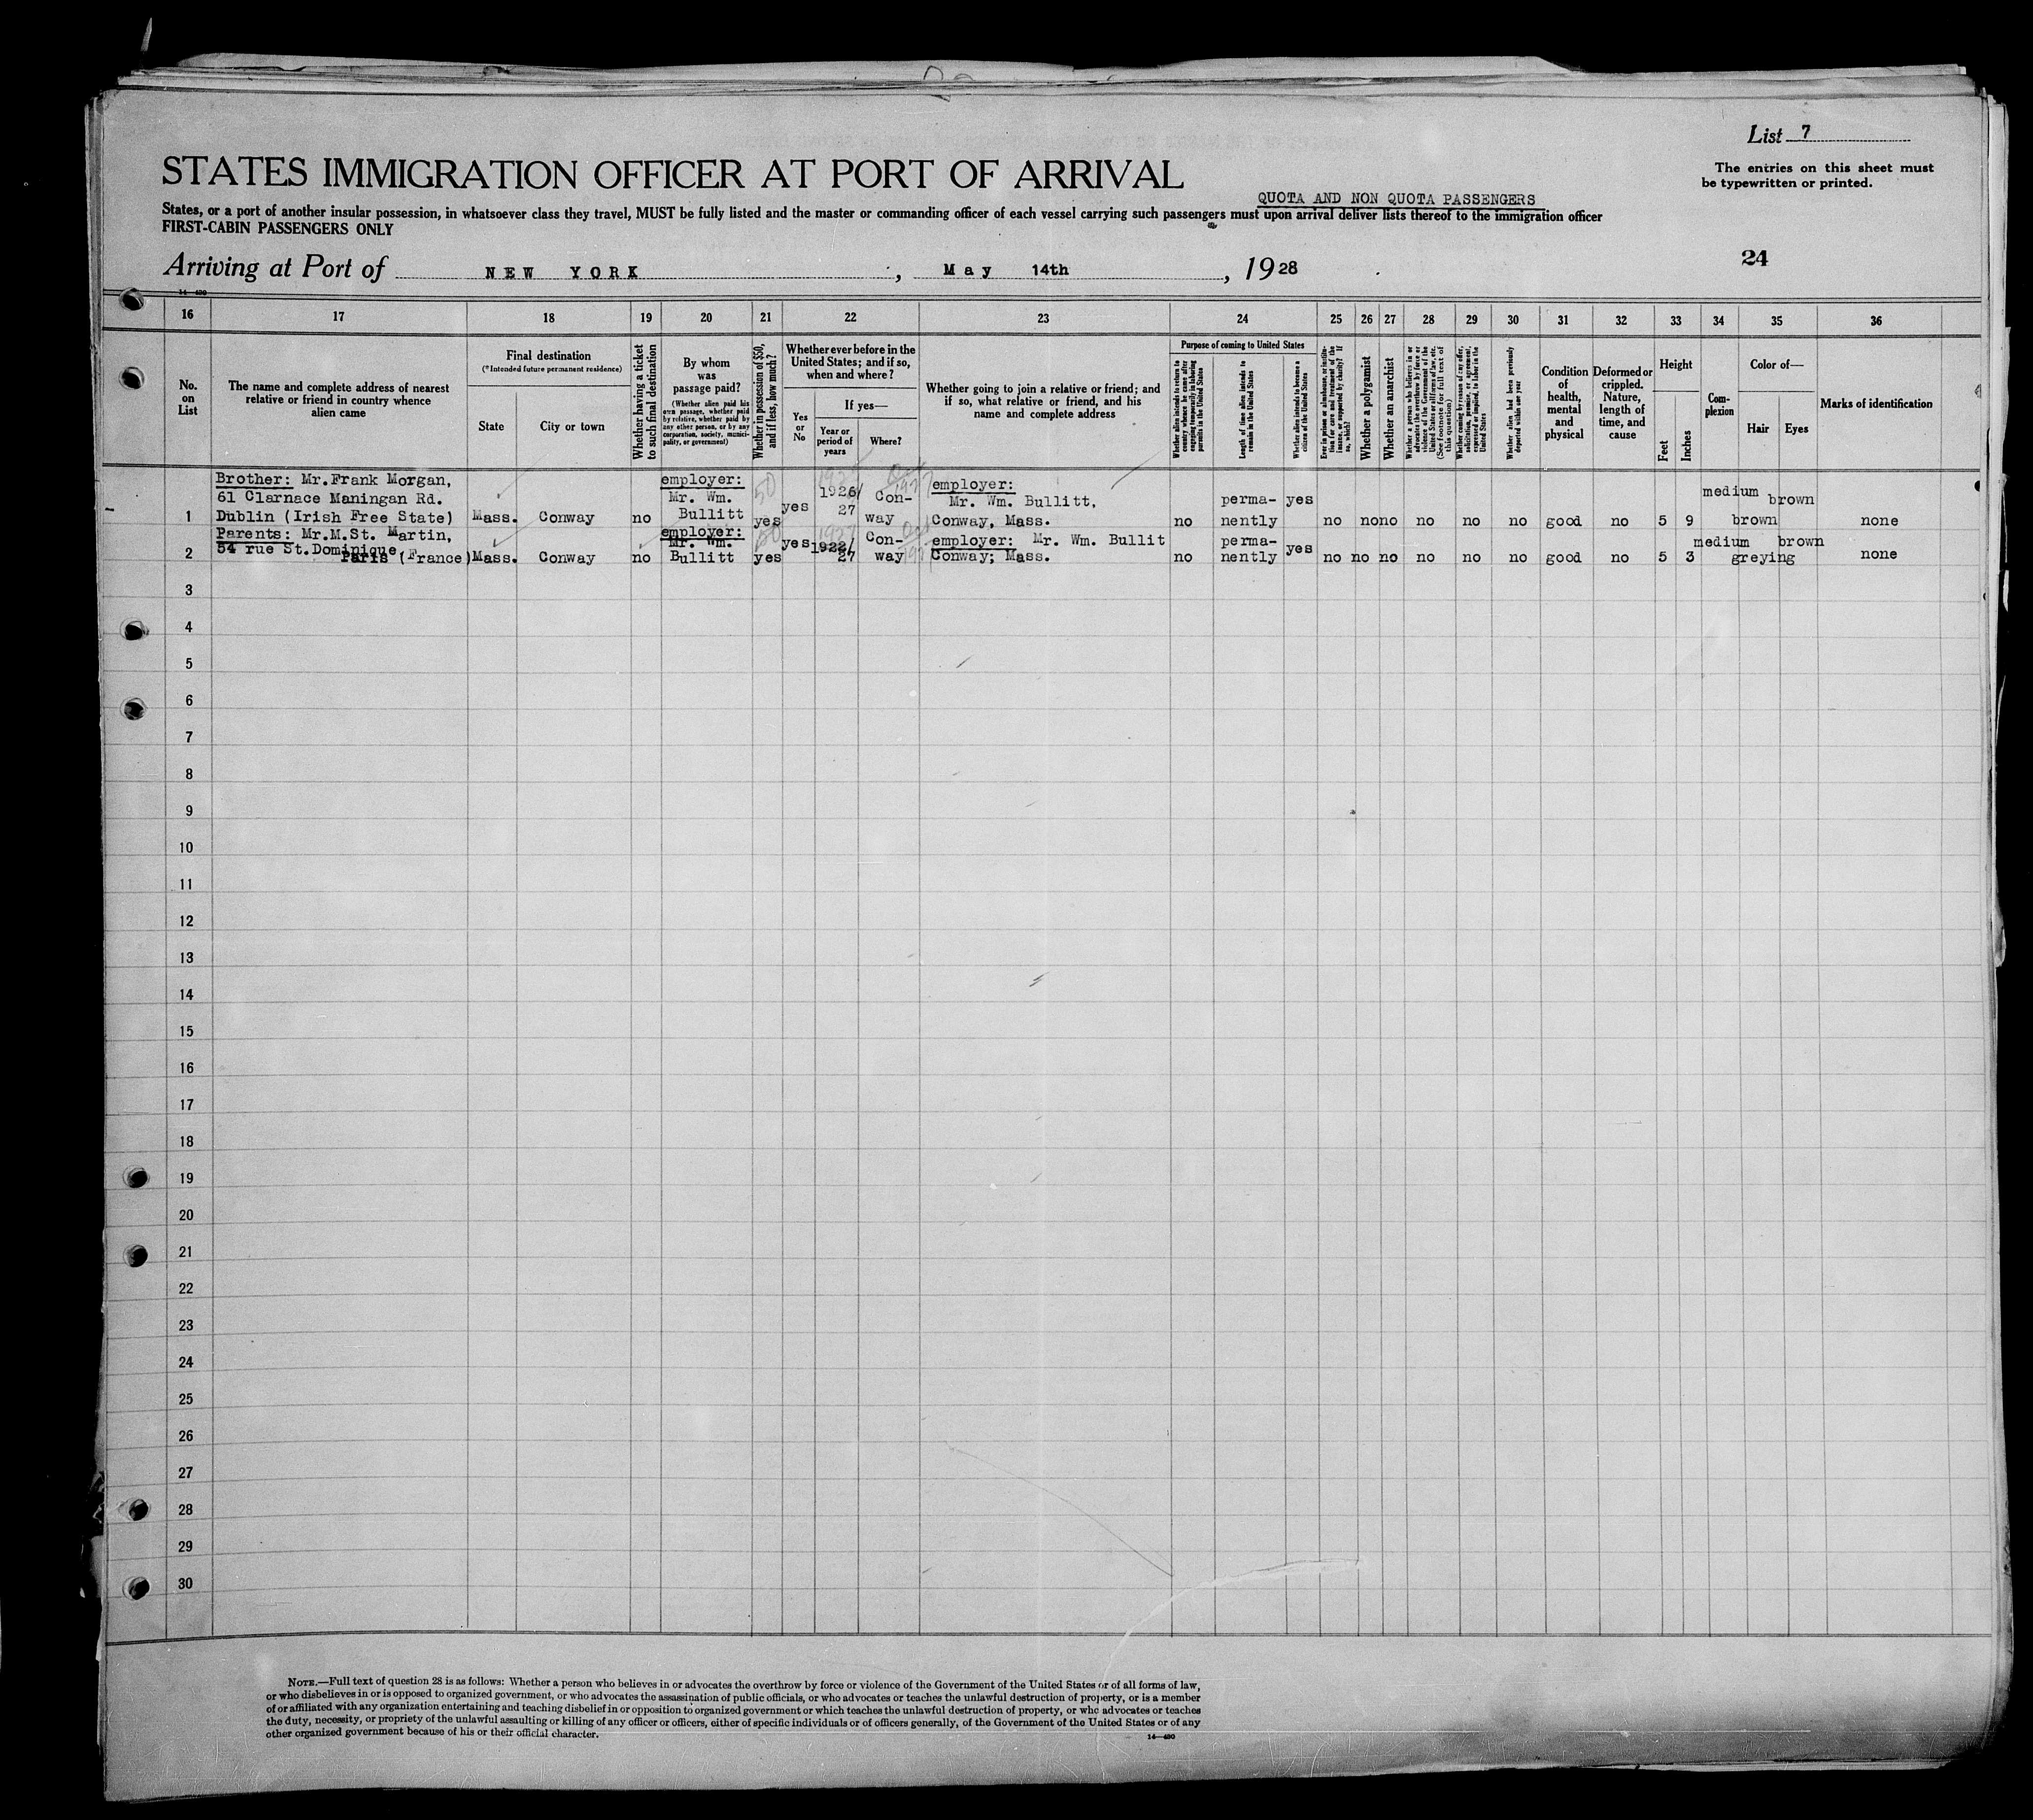 List 7
STATES IMMIGRATION OFFICER AT PORT OF ARRIVAL
The entries on this sheet must
be typewritten or printed.
QUOTA AND NON QUOTA PASSENGERS
States, or a port of another insular possession, in whatsoever class they travel, MUST be fully listed and the master or commanding officer of each vessel carrying such passengers must upon arrival deliver lists thereof to the immigration officer
FIRST-CABIN PASSENGERS ONLY
24
Arriving at Port of NEW YORK, May 14th, 1928
14—430
16 17 18 19 20 21 22 23 24 25 26 27 28 29 30 31 32 33 34 35 36
No. on List
The name and complete address of nearest
relative or friend in country whence
alien came
Final destination
(*Intended future permanent residence)
State
City or town
Whether having a ticket
to such final destination
By whom
was
passage paid?
(Whether alien paid his
own passage, whether paid
by relative, whether paid by
any other person, or by any
corporation, society, munici-
pality, or government)
Whether in possession of $50,
and if less, how much?
Whether ever before in the
United States; and if so,
when and where?
Yes
or
No
If yes—
Year or
period of
years
Where?
Whether going to join a relative or friend; and
if so, what relative or friend, and his
name and complete address
Purpose of coming to United States
Whether alien intends to return to
country whence he came after
engaging temporarily in laboring
pursuits in the United States
Length of time alien intends to
remain in the United States
Whether alien intends to become a
citizen of the United States
Ever in prison or almshouse, or institu-
tion for care and treatment of the
insane, or supported by charity? If
so, which?
Whether a polygamist
Whether an anarchist
Whether a person who believes in or
advocates the overthrow by force or
violence of the Government of the
United States or all forms of law, etc.
(See footnote for full text of
this question)
Whether coming by reason of any offer,
solicitation, promise, or agreement,
expressed or implied, to labor in the
United States
Whether alien had been previously
deported within one year
Condition
of
health,
mental
and
physical
Deformed or
crippled.
Nature,
length of
time, and
cause
Height
Feet
Inches
Com-
plexion
Color of—
Hair
Eyes
Marks of identification
Brother: Mr.Frank Morgan,
61 Clarnace Maningan Rd.
1 Dublin (Irish Free State) Mass. Conway no
employer:
Mr. Wm.
Bullitt
50
yes
yes
1926/
27
Con-
way
employer:
Mr. Wm. Bullitt,
Conway, Mass.
no
perma-
nently
yes
no no no no no no good no 5 9
medium
brown
brown
none
Parents: Mr.M.St. Martin,
54 rue St.Dominique
2 Paris (France) Mass. Conway no
employer:
Mr. Wm.
Bullitt
50
yes
yes
1922/
27
Con-
way
employer: Mr. Wm. Bullit
Conway; Mass.
no
perma-
nently
yes
no no no no no no good no 5 3
medium
brown
greying
none
3
4
5
6
7
8
9
10
11
12
13
14
15
16
17
18
19
20
21
22
23
24
25
26
27
28
29
30
NOTE.—Full text of question 28 is as follows: Whether a person who believes in or advocates the overthrow by force or violence of the Government of the United States or of all forms of law,
or who disbelieves in or is opposed to organized government, or who advocates the assassination of public officials, or who advocates or teaches the unlawful destruction of property, or is a member
of or affiliated with any organization entertaining and teaching disbelief in or opposition to organized government or which teaches the unlawful destruction of property, or who advocates or teaches
the duty, necessity, or propriety of the unlawful assaulting or killing of any officer or officers, either of specific individuals or of officers generally, of the Government of the United States or of any
other organized government because of his or their official character.
14—430